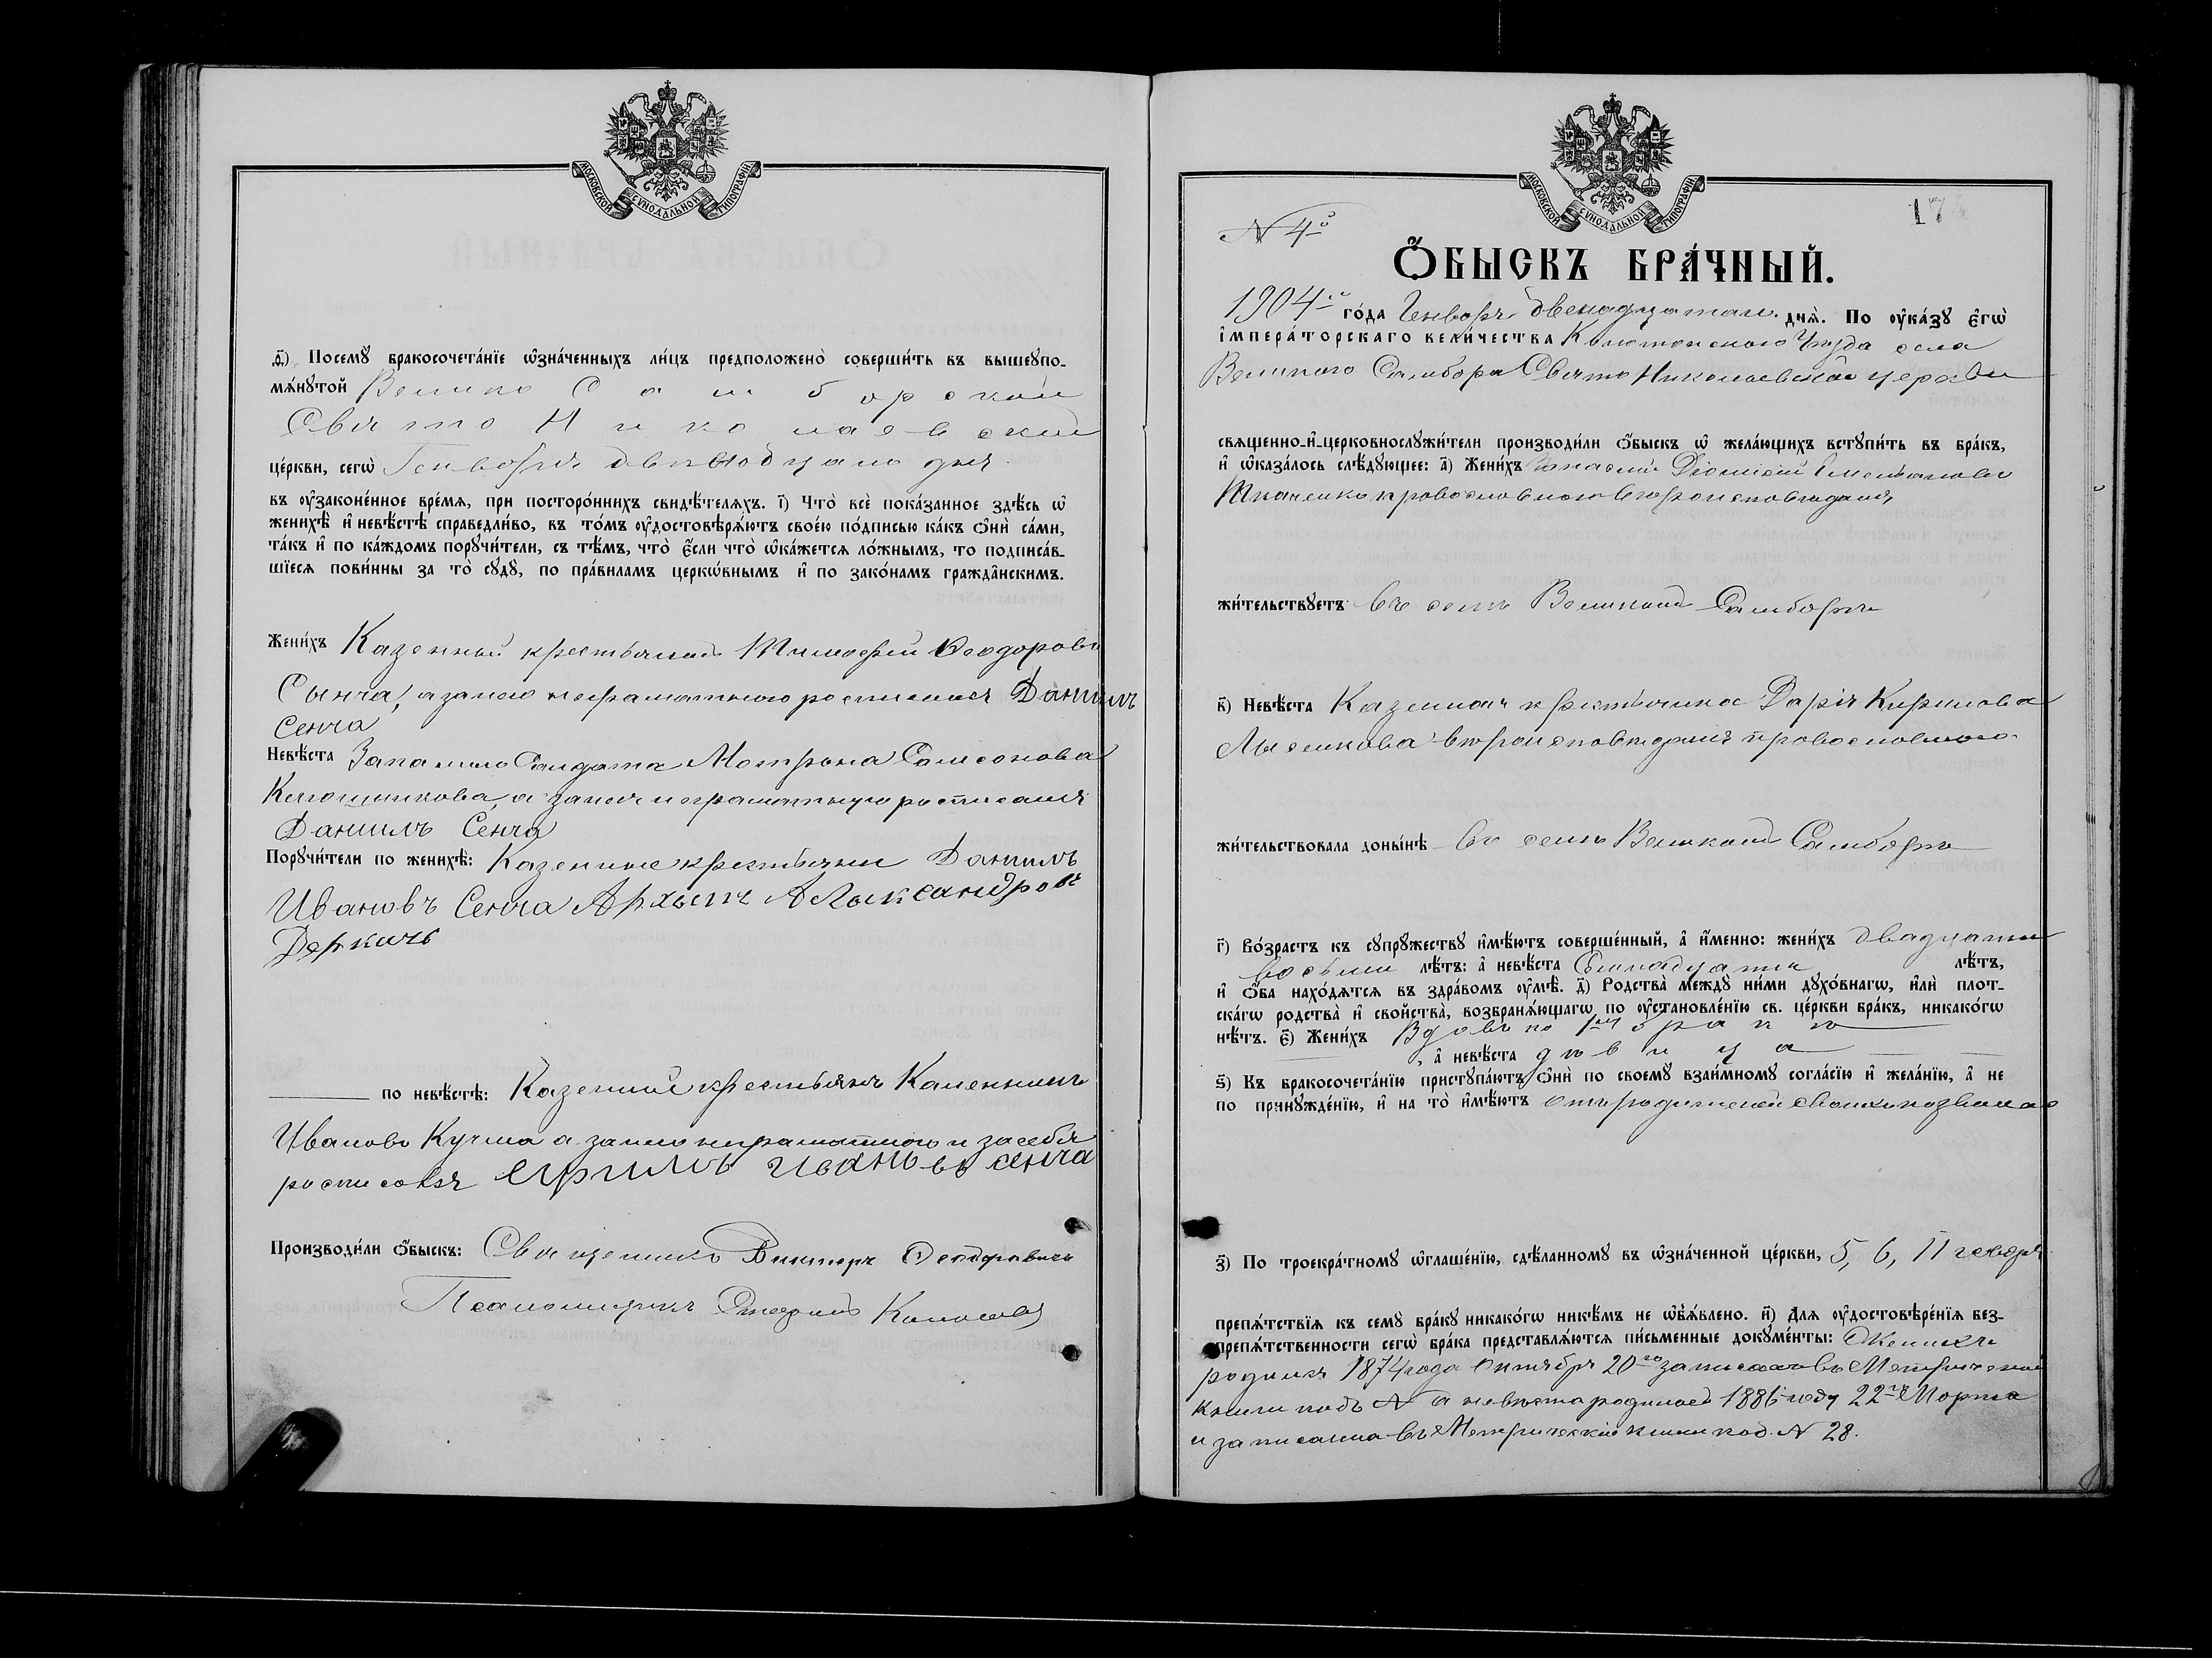 МОСКОВСКОЙ СѴНОДАЛЬНОЙ ТИПОГРАФІИ.
ѳ҃) Посемꙋ бракосочета́нїе ѡ҆зна́ченныхъ ли́цъ предположено̀ соверши́ть въ вышеꙋпо-
мѧ́нꙋтой Велико Самборской
Свято Николаевской
це́ркви, сегѡ̀ Генворя дня
въ оу҆законе́нное вре́мѧ, при посторо́ннихъ свидѣ́телѧхъ. і҃) Что̀ всѐ пока́занное здѣ́сь ѡ҆
женихѣ̀ и҆ невѣ́стѣ справедли́во, въ то́мъ оу҆достовѣрѧ́ютъ свое́ю по́дписью ка́къ ѻ҆нѝ са́ми,
та́къ и҆ по ка́ждомъ порꙋчи́тели, съ тѣ́мъ, что̀ є҆́сли что̀ ѡ҆ка́жетсѧ ло́жнымъ, то подписа́в-
шїесѧ пови́нны за то̀ сꙋдꙋ̀, по пра́виламъ церкѡ́внымъ и҆ по зако́намъ гражда́нскимъ.
Жени́хъ Казенный крестьянинъ Тимофей Феодоровъ
Сынча, а за него неграматного росписался Даниилъ
Сенча
Невѣ́ста Запасного Солдата Мотрона Самсонова
а за нея неграматную росписался
Даниилъ Сенча
Порꙋчи́тели по женихѣ̀: Казенные крестьяни Даниилъ
Ивановъ Сенча Архыпъ Алыксандровъ
Деркачъ
по невѣ́стѣ: Казенный крестьянъ
Ивановъ Кучма а за него неграматного и за себя
росписовся Ефимъ Ивановъ Сенча
Производи́ли ѻ҆́быскъ: Священникъ Викторъ
Псаломщикъ
МОСКОВСКОЙ СѴНОДАЛЬНОЙ ТИПОГРАФІИ.
N 4й
17
Ѻ҆́БЫСКЪ БРА́ЧНЫЙ.
1904го го́да Генворя двенадцатаго днѧ̀. По оу҆ка́зꙋ є҆гѡ̀
і҆мпера́торскаго вели́чества Конотопского Уезда села
Великого Самбора Свято Николаевской церкви
свѧщенно-и҆-церковнослꙋжи́тели производи́ли ѻ҆́быскъ ѡ҆ жела́ющихъ встꙋпи́ть въ бра́къ,
и҆ ѡ҆каза́лось слѣ́дꙋющее: а҃) Жени́хъ
Ткаченко провословного вероисповедания
жи́тельствꙋетъ въ селе Великомъ Самборе
в҃) Невѣ́ста Казенная крестьянка Дарія Кирилова
вероисповедания провословного
жи́тельствовала доны́нѣ въ селе Великомъ Самборе
г҃) Во́зрастъ къ сꙋпрꙋ́жествꙋ и҆мѣ́ютъ соверше́нный, а҆ и҆́менно: жени́хъ двадцати
восьми лѣ́тъ: а҆ невѣ́ста лѣ́тъ,
и҆ ѻ҆́ба нахо́дѧтсѧ въ здра́вомъ оу҆мѣ̀. д҃) Родства̀ междꙋ̀ ни́ми дꙋхо́внагѡ, и҆лѝ плот-
ска́гѡ родства̀ и҆ сво́йства̀, возбранѧ́ющагѡ по оу҆становле́нїю св. це́ркви бра́къ, никако́гѡ
нѣ́тъ. є҃) Жени́хъ Вдовъ по 1мъ браке
, а҆ невѣ́ста девица
ѕ҃) Къ бракосочета́нїю пристꙋпа́ютъ ѻ҆нѝ по своемꙋ̀ взаи́мномꙋ согла́сїю и҆ жела́нїю, а҆ не
по принꙋжде́нїю, и҆ на то̀ и҆мѣ́ютъ отъ родителей своихъ
з҃) По троекра́тномꙋ ѡ҆глаше́нїю, сдѣ́ланномꙋ въ ѡ҆зна́ченной це́ркви, 5, 6, 11 генворя
препѧ́тствїѧ къ семꙋ̀ бра́кꙋ никако́гѡ никѣ́мъ не ѡ҆б̾ѧ́влено. и҃) Длѧ оу҆достовѣре́нїѧ без-
препѧ́тственности сегѡ̀ бра́ка представлѧ́ютсѧ пи́сьменные докꙋме́нты: Женихъ
родился 1874 года Октября 20го записанъ въ Метрической
книги подъ N а невеста родилась 1886 году 22го Морта
и записана въ Метрической книги под N 28.